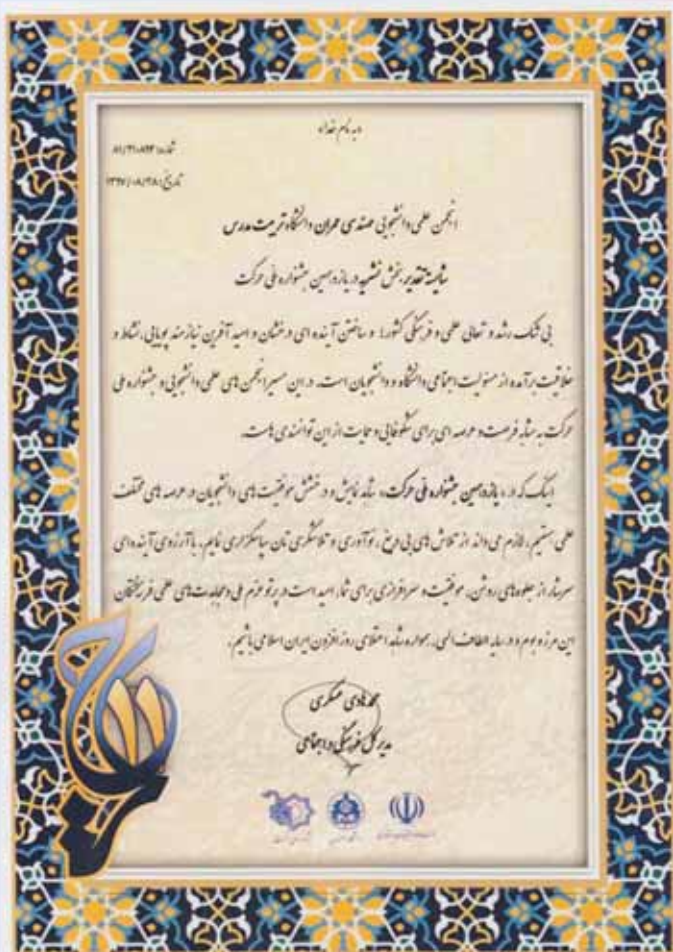 «به نام خدا»
شماره: ۸۱/۳۱۰۸۹۳
تاریخ: ۱۳۹۷/۰۸/۲۸
انجمن علمی دانشجویی مهندسی عمران دانشگاه تربیت مدرس
شایسته تقدیر بخش نشریه در یازدهمین جشنواره ملی حرکت
بی شک رشد و تعالی علمی و فرهنگی کشورا و ساختن آینده ای درخشان و امید آفرین نیازمند پویایی، نشاط و
خلاقیت برآمده از مسئولیت اجتماعی دانشگاه و دانشجویان است. در این مسیر انجمن های علمی دانشجویی و جشنواره ملی
حرکت به مثابه فرصت و عرصه ای برای شکوفایی و حمایت از این توانمندی هاست.
اینک که در «یازدهمین جشنواره ملی حرکت» شاهد نمایش و درخشش موفقیت های دانشجویان در عرصه های مختلف
علمی هستیم، لازم می داند از تلاش های بی دریغ، نوآوری و تلاشگری تان سپاسگزاری نمایم. با آرزوی آینده ای
سرشار از جلوه های روشن، موفقیت و سرافرازی برای شما، امید است در پرتو عزم ملی و مجاهدت های علمی فرهیختگان
این مرز و بوم و در سایه الطاف الهی، همواره شاهد اعتلای روز افزون ایران اسلامی باشیم.
محمد هادی عسگری
مدیر کل فرهنگی و اجتماعی
حرکت
۱۱